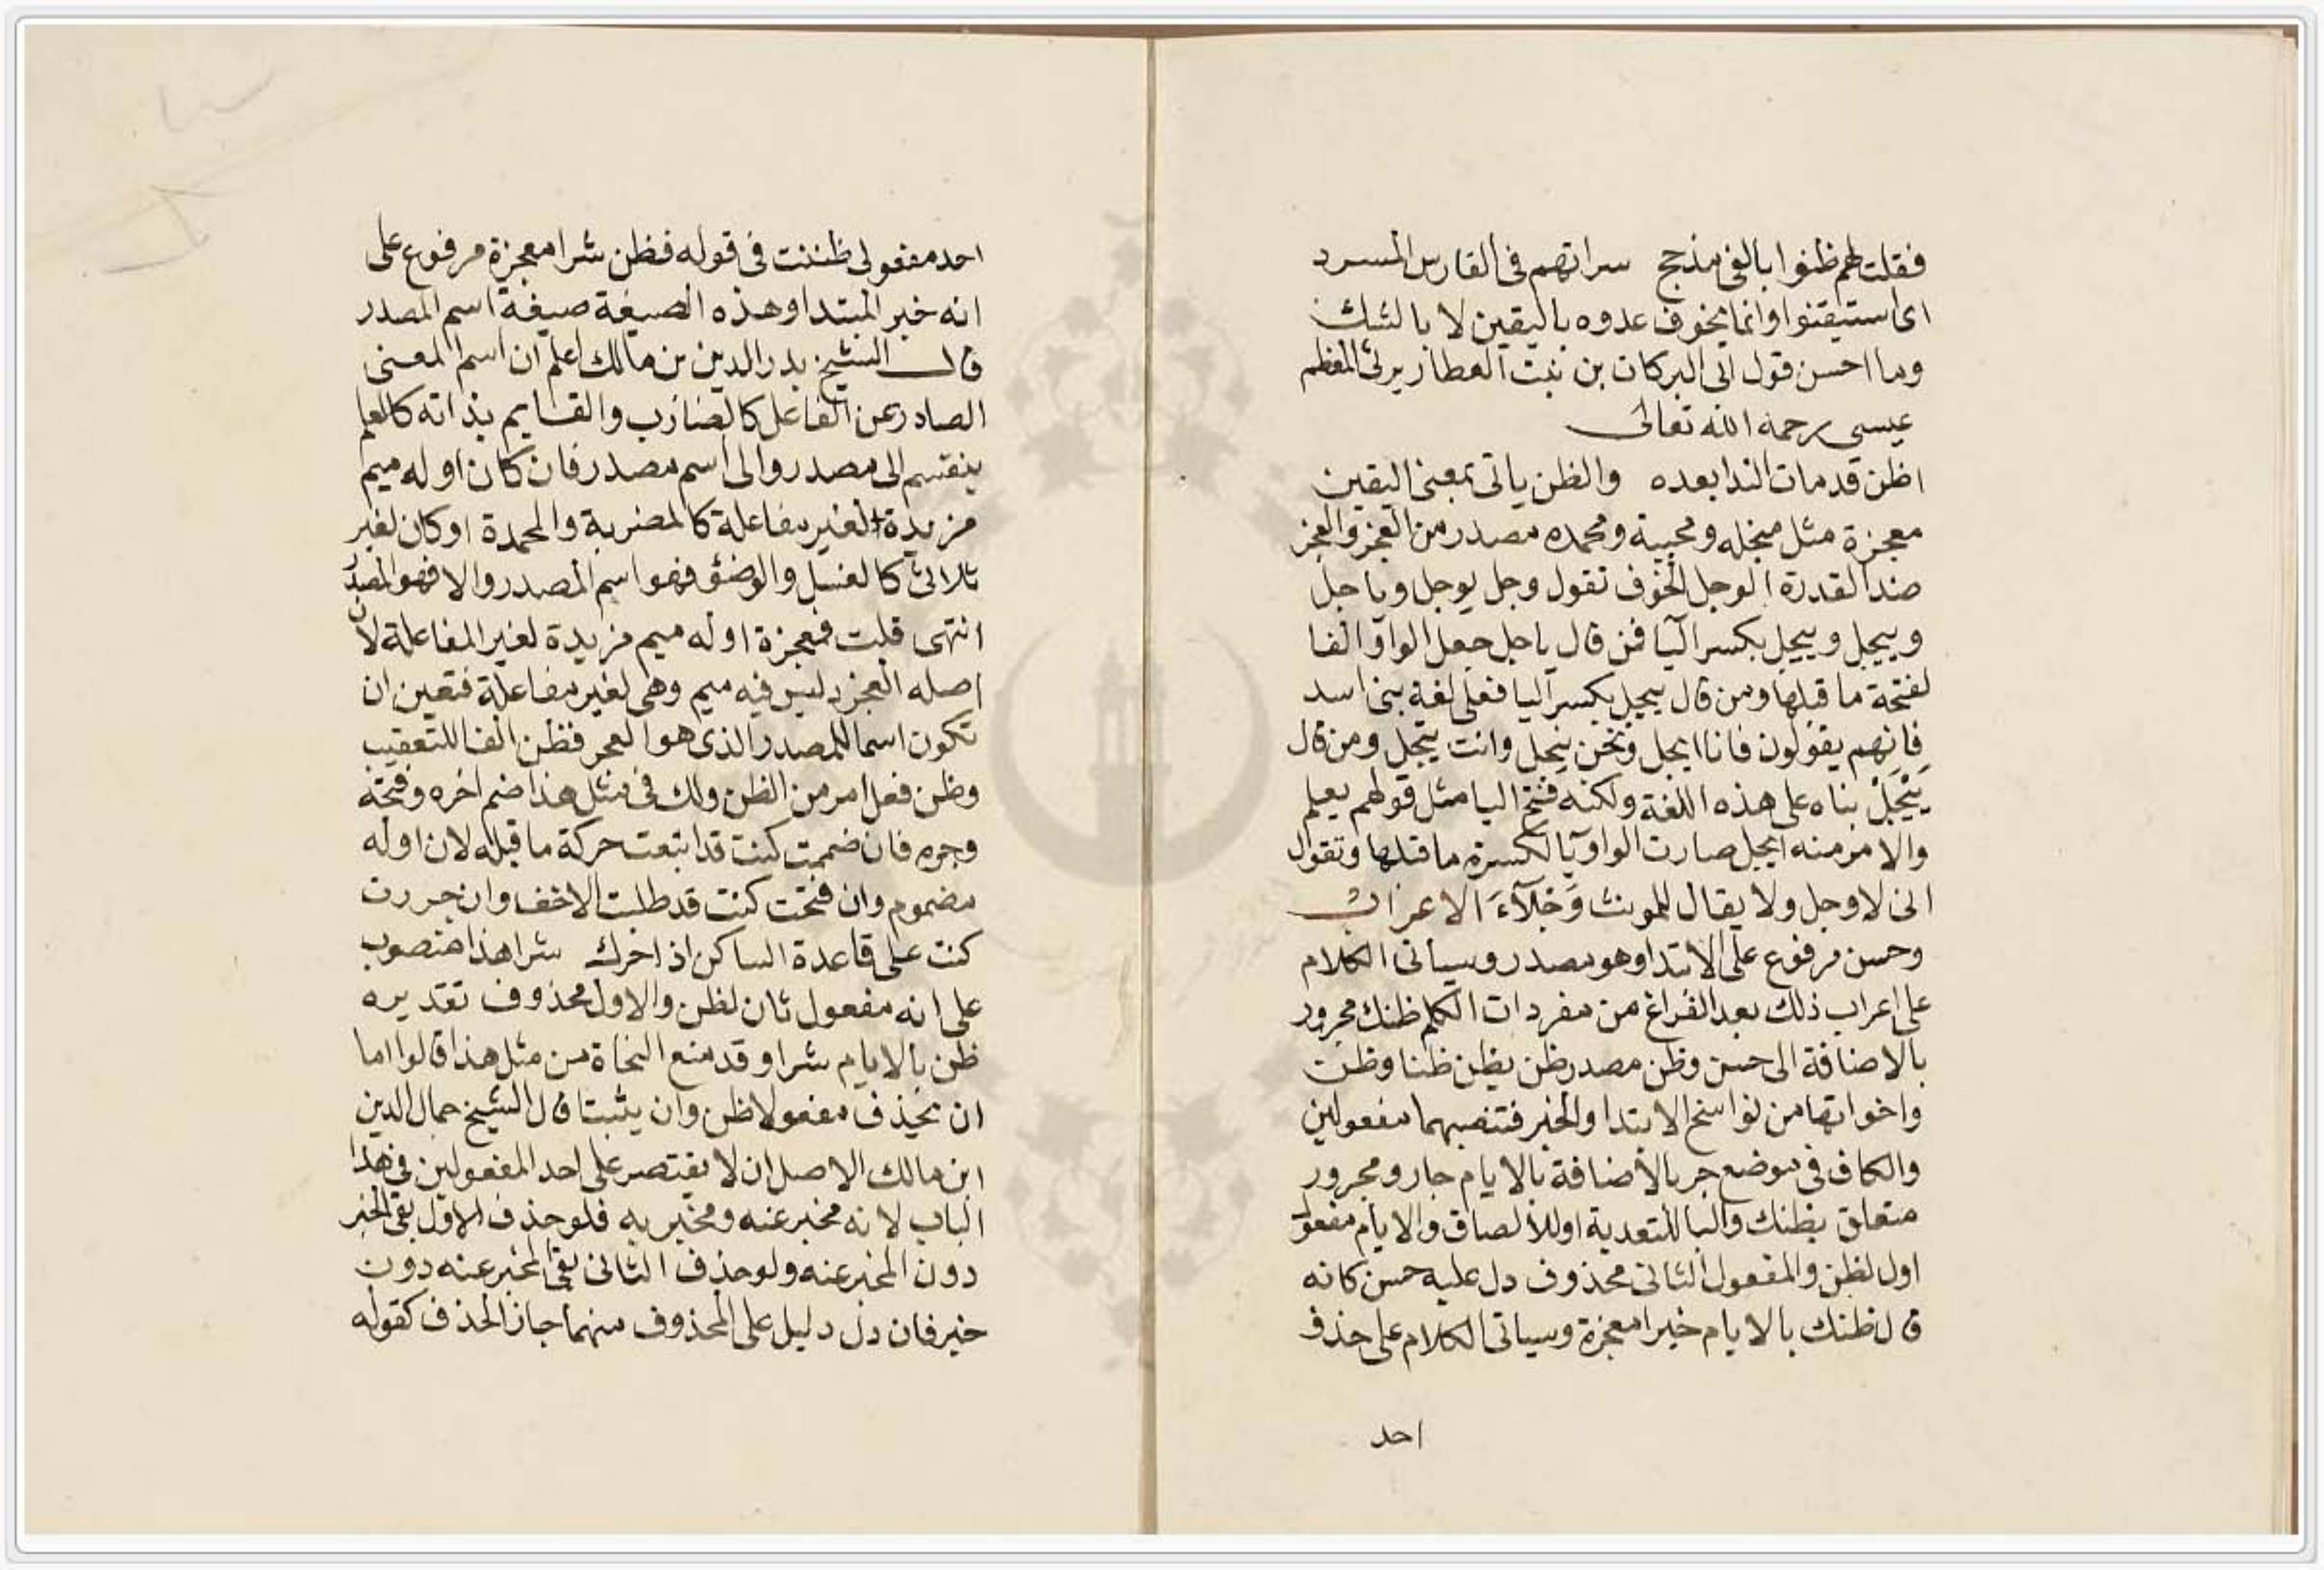 فقلت لهم ظنوا بالفى مذحج سراتهم فى الفارس المسرد
اى استيقنوا وانما يخوف عدوه باليقين لا بالشك
وما احسن قول ابى البركات بن بنت العطار يرثى المعظم
عيسى رحمه الله تعالى
اظن قد مات الندا بعده والظن ياتى بمعنى اليقين
معجزة مثل مبخله ومجبنة ومحمده مصدر من العجز والعجز
ضد القدرة الوجل الخوف تقول وجل يوجل وياجل
وييجل وييجل بكسر اليا فمن قال ياجل جعل الواو الفا
لفتحة ما قبلها ومن قال ييجل بكسر اليا فعلى لغة بنى اسد
فانهم يقولون فانا ايجل ونحن نيجل وانت تيجل ومن قال
يَيْجَلُ بناه على هذه اللغة ولكنه فتح اليا مثل قولهم يعلم
والامر منه ايجل صارت الواو يا لكسرة ما قبلها وتقول
انى لاوجل ولا يقال للمونث وَجْلآءَ الاعراب
وحسن مرفوع على الابتدا وهو مصدر وسياتى الكلام
على اعراب ذلك بعد الفراغ من مفردات الكلم ظنك مجرور
بالاضافة الى حسن وظن مصدر ظن يظن ظنا وظن
واخواتها من نواسخ الابتدا والخبر فتنصبهما مفعولين
والكاف فى موضع جر بالاضافة بالايام جار ومجرور
متعلق بظنك والبا للتعدية او للالصاق والايام مفعول
اول لظن والمفعول الثانى محذوف دل عليه حسن كانه
قال ظنك بالايام خيرا معجزة وسياتى الكلام على حذف
احد
احد مفعولى ظننت فى قوله فظن شرا معجزة مرفوع على
انه خبر المبتدا وهذه الصيغة صيغة اسم المصدر
قال الشيخ بدر الدين بن مالك اعلم ان اسم المعنى
الصادر عن الفاعل كالضارب والقايم بذاته كالعلم
ينقسم الى مصدر والى اسم مصدر فان كان اوله ميم
مزيدة لغير مفاعلة كالمضربة والمحمدة او كان لغير
ثلاثى كالغسل والوضؤ فهو اسم المصدر والا فهو المصدر
انتهى قلت فمعجزة اوله ميم مزيدة لغير المفاعلة لان
اصله العجز وليس فيه ميم وهى لغير مفاعلة فتعين ان
تكون اسما للمصدر الذى هو العجز فظن الفا للتعقيب
وظن فعل امر من الظن ولك فى مثل هذا ضم اخره وفتحه
وجره فان ضممت كنت قد اتبعت حركة ما قبله لان اوله
مضموم وان فتحت كنت قد طلبت الاخف وان جررت
كنت على قاعدة الساكن اذا حرك شرا هذا منصوب
على انه مفعول ثان لظن والاول محذوف تقديره
ظن بالايام شرا وقد منع النحاة من مثل هذا قالوا اما
ان يحذف مفعولا ظن وان يثبتا قال الشيخ جمال الدين
ابن مالك الاصل ان لا يقتصر على احد المفعولين فى هذا
الباب لانه مخبر عنه ومخبر به فلو حذف الاول بقى الخبر
دون المخبر عنه ولو حذف الثانى بقى المخبر عنه دون
خبر فان دل دليل على المحذوف منهما جاز الحذف كقوله